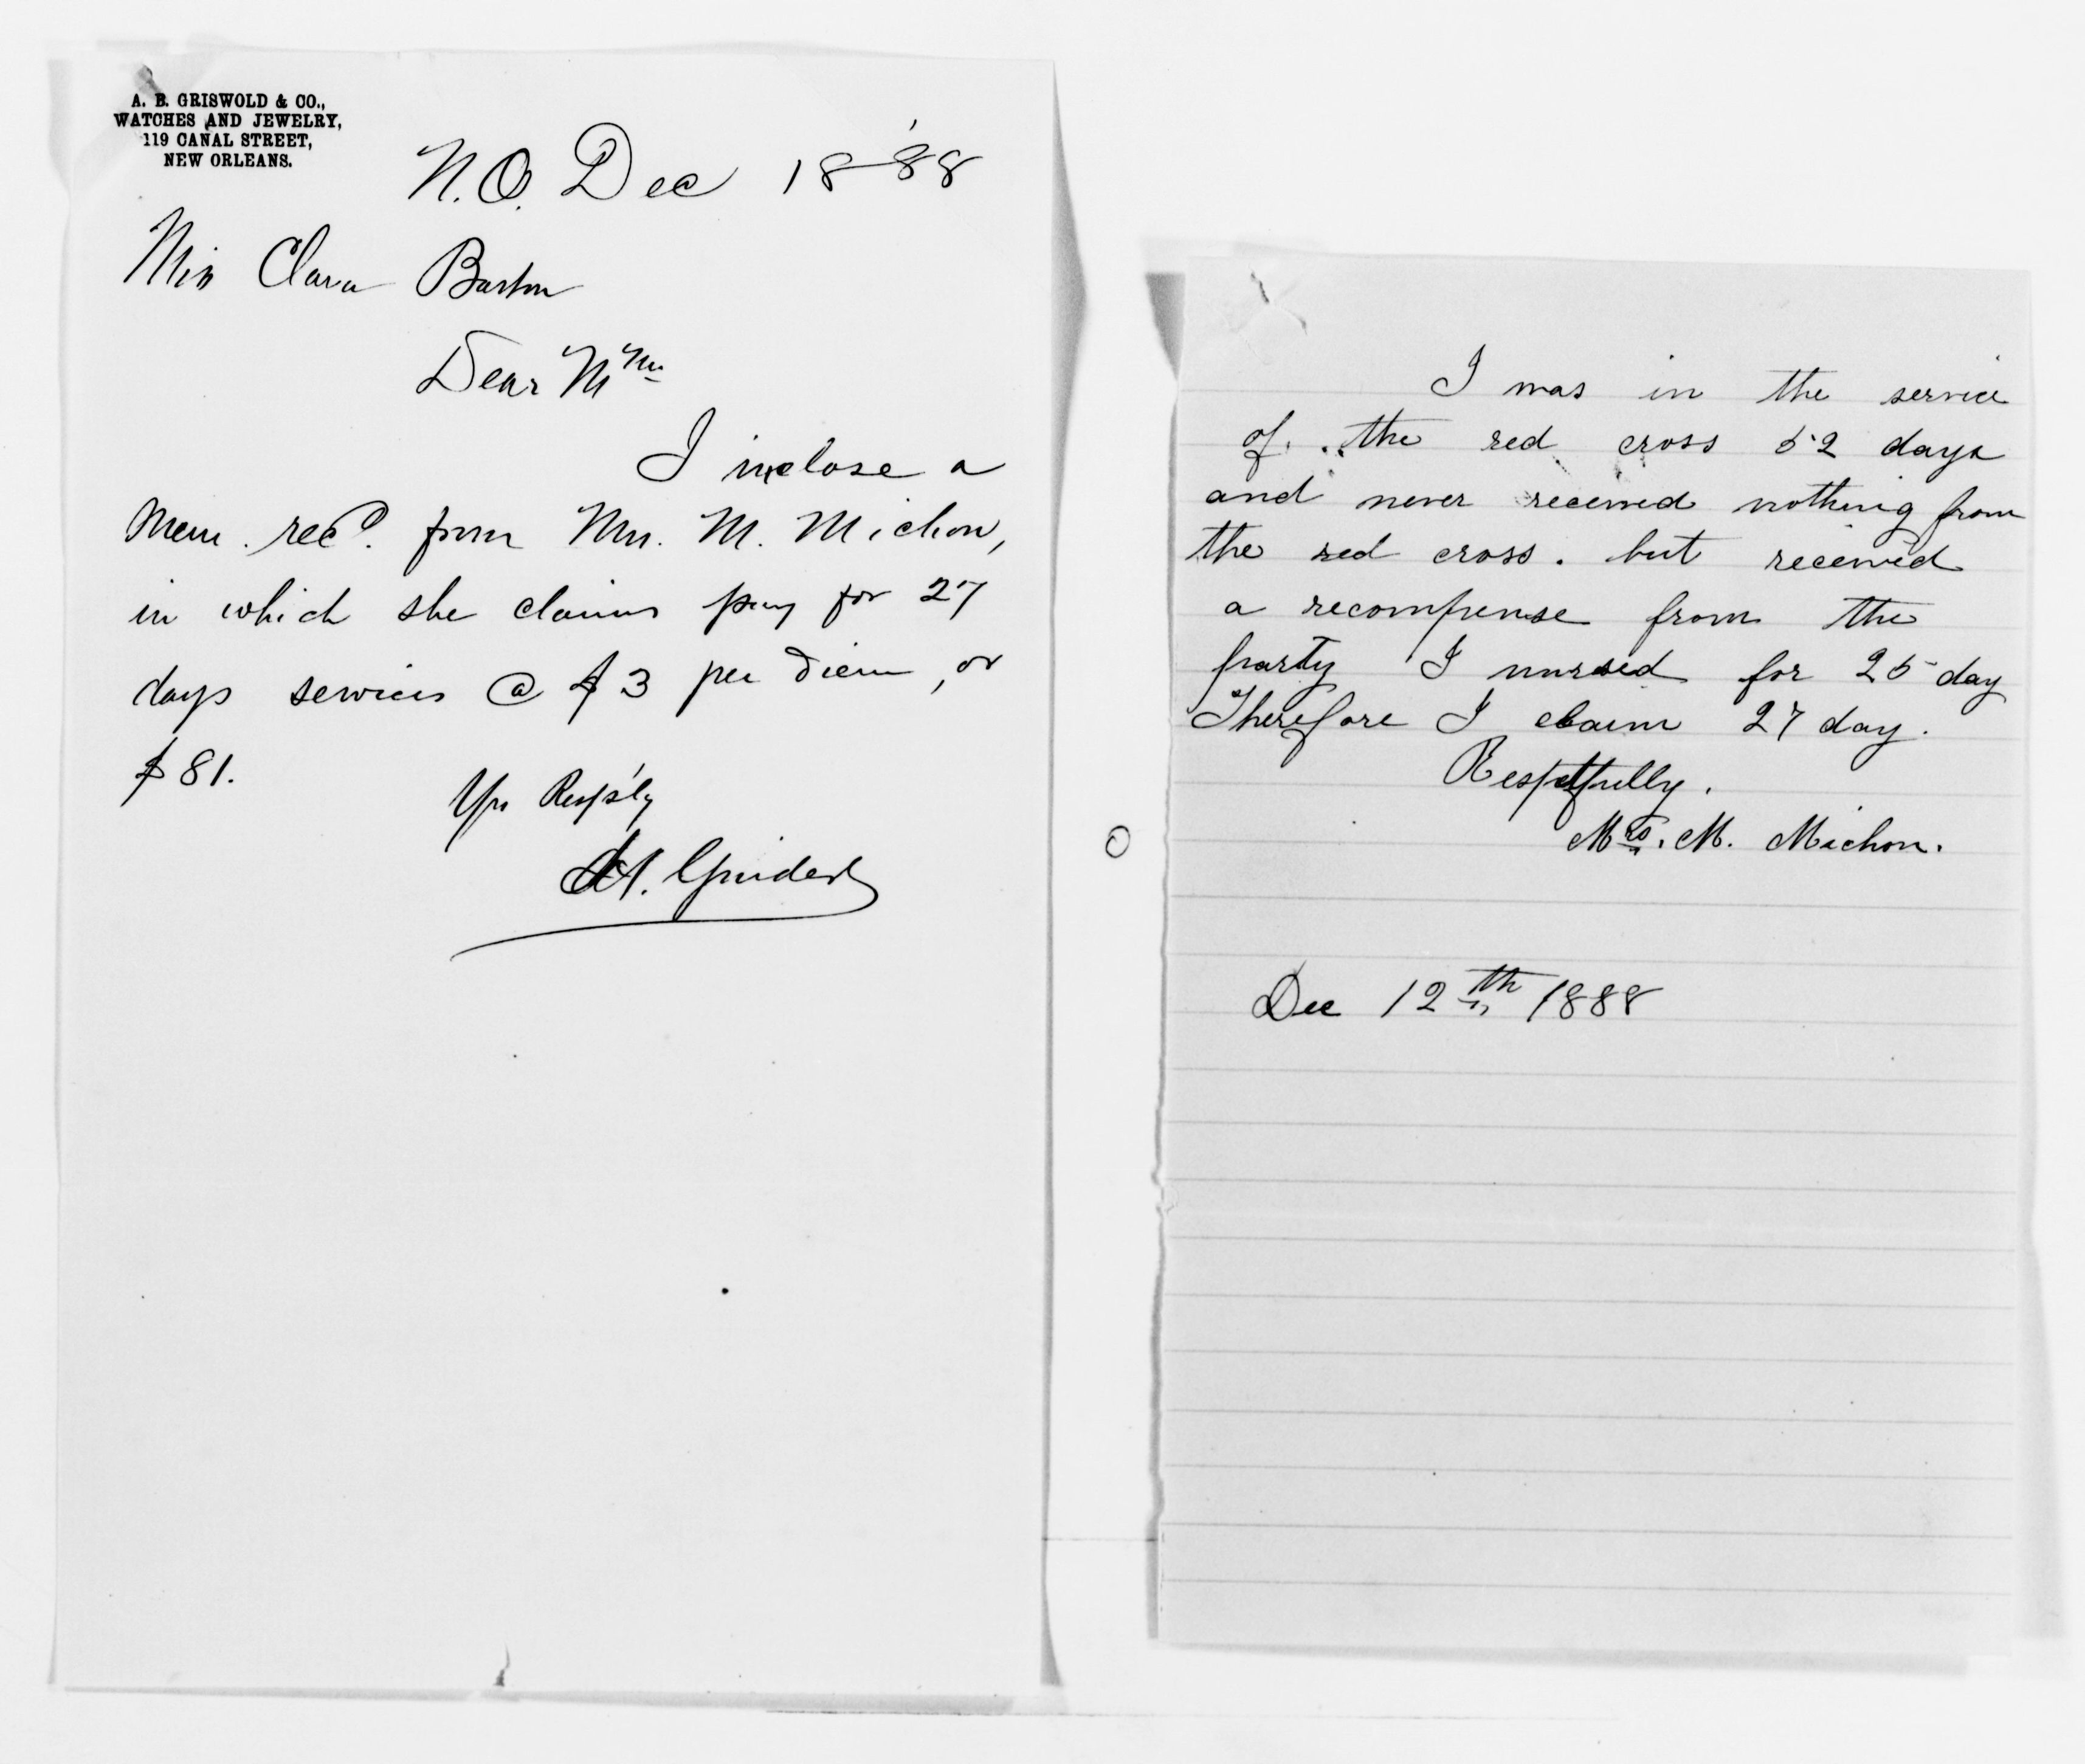 A. B. GRISWOLD & CO.,
WATCHES AND JEWELRY,
119 CANAL STREET,
NEW ORLEANS.
N.O. Dec 18 '88
Miss Clara Barton
Dear Mme
I inclose a
Mem. recd. from Mrs. M. Michon,
in which she claims pay for 27
days services @ $3 per diem, or
$81.
Yrs Resp'ly
I was in the service
of the red cross 52 days
and never received nothing from
the red cross. but received
a recompense from the
party I nursed for 25 day
Therefore I claim 27 day.
Respetfully.
Mrs. M. Michon.
Dec 12th 1888